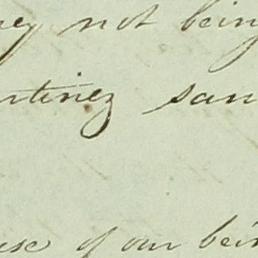 ey not being
rtinez san
use of our bein